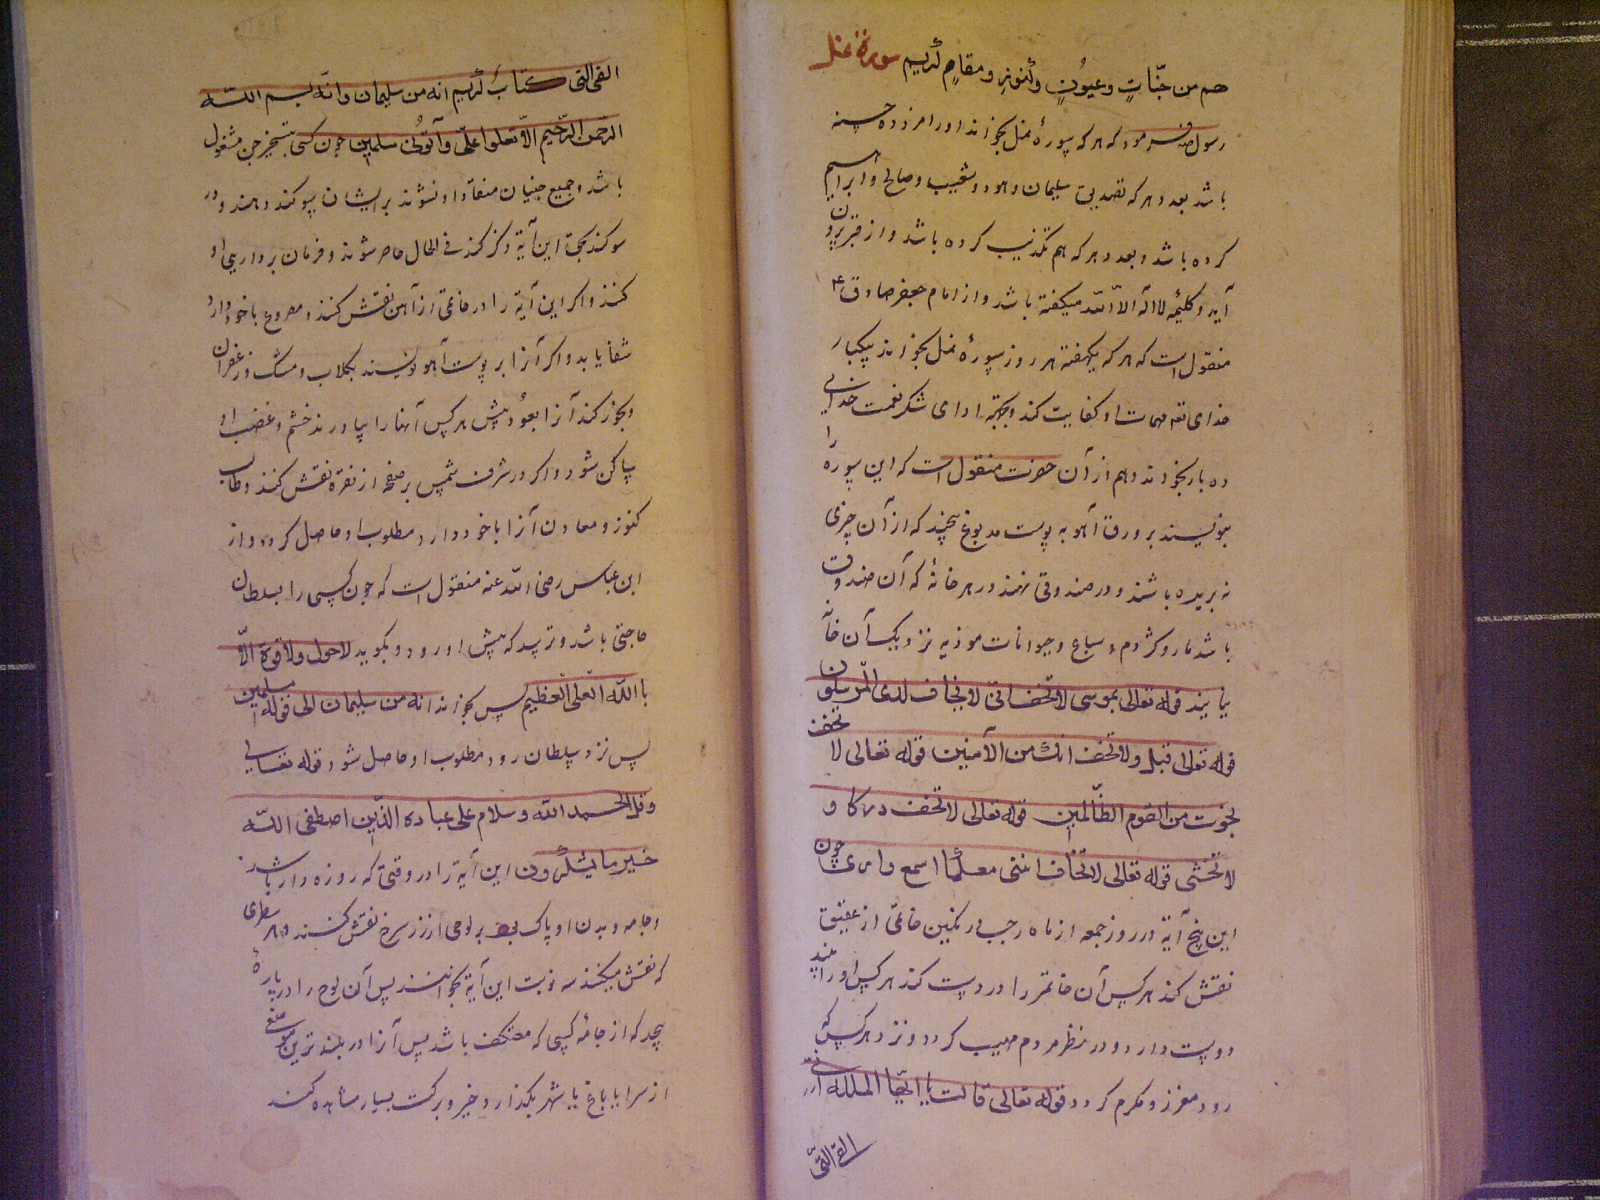 هم من جنّاتٍ وعیونٍ وکنوزٍ ومقامٍ کریم سورة نمل
رسول ص فرمود که هر که سورهٔ نمل بخواند او را مزد ده حسنه
باشد بعدد هر که تصدیق سلیمان و هود و شعیب و صالح و ابراهیم
کرده باشد و بعدد هر که هم تکذیب کرده باشد و از قبر برون
آید و کلیمهٔ لااله الاالله میکفته باشد و از امام جعفر صادق ع
منقول است که هر که یکهفته هر روز سورهٔ نمل بخواند یکبار
خدای تعه مهمات او کفایت کند و بجهة ادای شکر نعمت خدای
ده بار بخواند و هم از آن حضرت منقول است که این سوره را
بنویسند بر ورق آهو به پوست مدبوغ پیچند که از آن چیزی
نه بریده باشند و در صندوقی نهند در هر خانهٔ که آن صندوق
باشد مار و کژدم و سباع و حیوانات موذیه نزدیک آن خانه
نیایند قوله تعالی یموسی لاتخف انی لایخاف لدی المرسلون
قوله تعالی اقبل ولاتخف انک من الآمنین قوله تعالی لا تخف
نجوت من القوم الظّالمین قوله تعالی لاتخف درکا و
لا تخشی قوله تعالی لاتخافا اننی معکما اسمع واری چون
این پنج آیة در روز جمعه از ماه رجب در نکین خاتمی از عقیق
نقش کند هر کس آن خاتم را در دست کند هر کس او را بیند
دوست دارد و در نظر مردم مهیب کردد و نزد هر کس که
رود معزز و مکرم کردد قوله تعالی قالت یا ایّها الملاء انی
القی الیّ
القی الیّ کتابٌ کریم انه من سلیمان وانّه بسم اللّه
الرّحمن الرّحیم الاّ تعلوا علیّ وأتونی مسلمین چون کسی بتسخیر جن مشغول
باشد و جمیع جنیان منقاد او نشوند بر ایشان سوکند دهند و در
سوکند بحق این آیة ذکر کند فی الحال حاضر شوند و فرمان برداری او
کنند و اکر این آیة را در خاتمی از آهن نقش کنند و مصروع با خود دارد
شفا یابد و اکر آنرا بر پوست آهو نویسند بکلاب و مشک و زعفران
و بخور کند آنرا بعود پیش هر کس آنها را بیاورند خشم و غضب او
ساکن شود و اکر در شرف شمس بر صفحه از نقره نقش کنند و طالب
کنوز و معادن آنرا با خود دارد مطلوب او حاصل کردد و از
ابن عباس رضی الله عنه منقول است که چون کسی را بسلطان
حاجتی باشد و ترسد که پیش او رود و بکوید لاحول ولاقوة الاّ
باالله العلی العظیم پس بخواند انه من سلیمان الی قوله مسلمین
پس نزد سلطان رود مطلوب او حاصل شود قوله تعالی
وقل الحمد الله وسلام علی عباده الذین اصطفی اللّه
خیر ما یشکرون این آیة را در وقتی که روزه دار باشد
و جامه و بدن او پاک بود بر لوحی از زر سرخ نقش کنند و هر سطری
که نقش میکنند سه نوبت این آیة بخوانند پس آن لوح را در پارهٔ
پیچد که از جامهٔ کسی که معتکف باشد پس آنرا در بلندترین موضعی
از سرا یا باغ یا شهر بکذارد خیر و برکت بسیار مشاهده کند